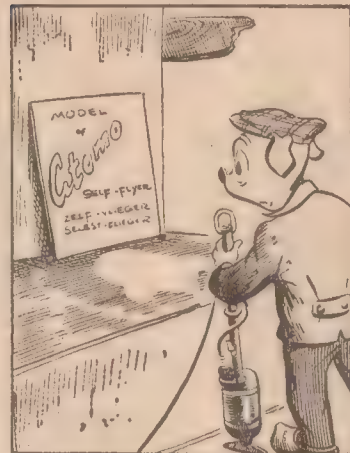 MODEL
of
Atomo
SELF-FLYER
ZELF-VLIEGER
SELBST-FLIEGER